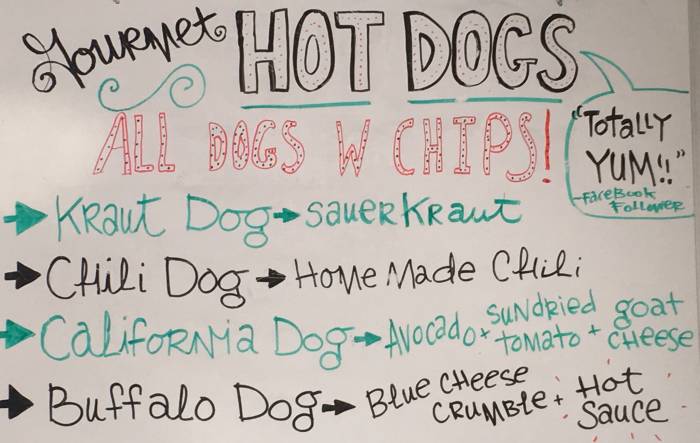 Gourmet HOT DOGS
ALL DOGS W CHIPS!
"Totally
YUM!!"
-FaceBook
Follower
Kraut Dog → Sauerkraut
Chili Dog → Home Made Chili
California Dog → Avocado + Sundried Tomato + goat cheese
Buffalo Dog → Blue Cheese Crumble + Hot Sauce